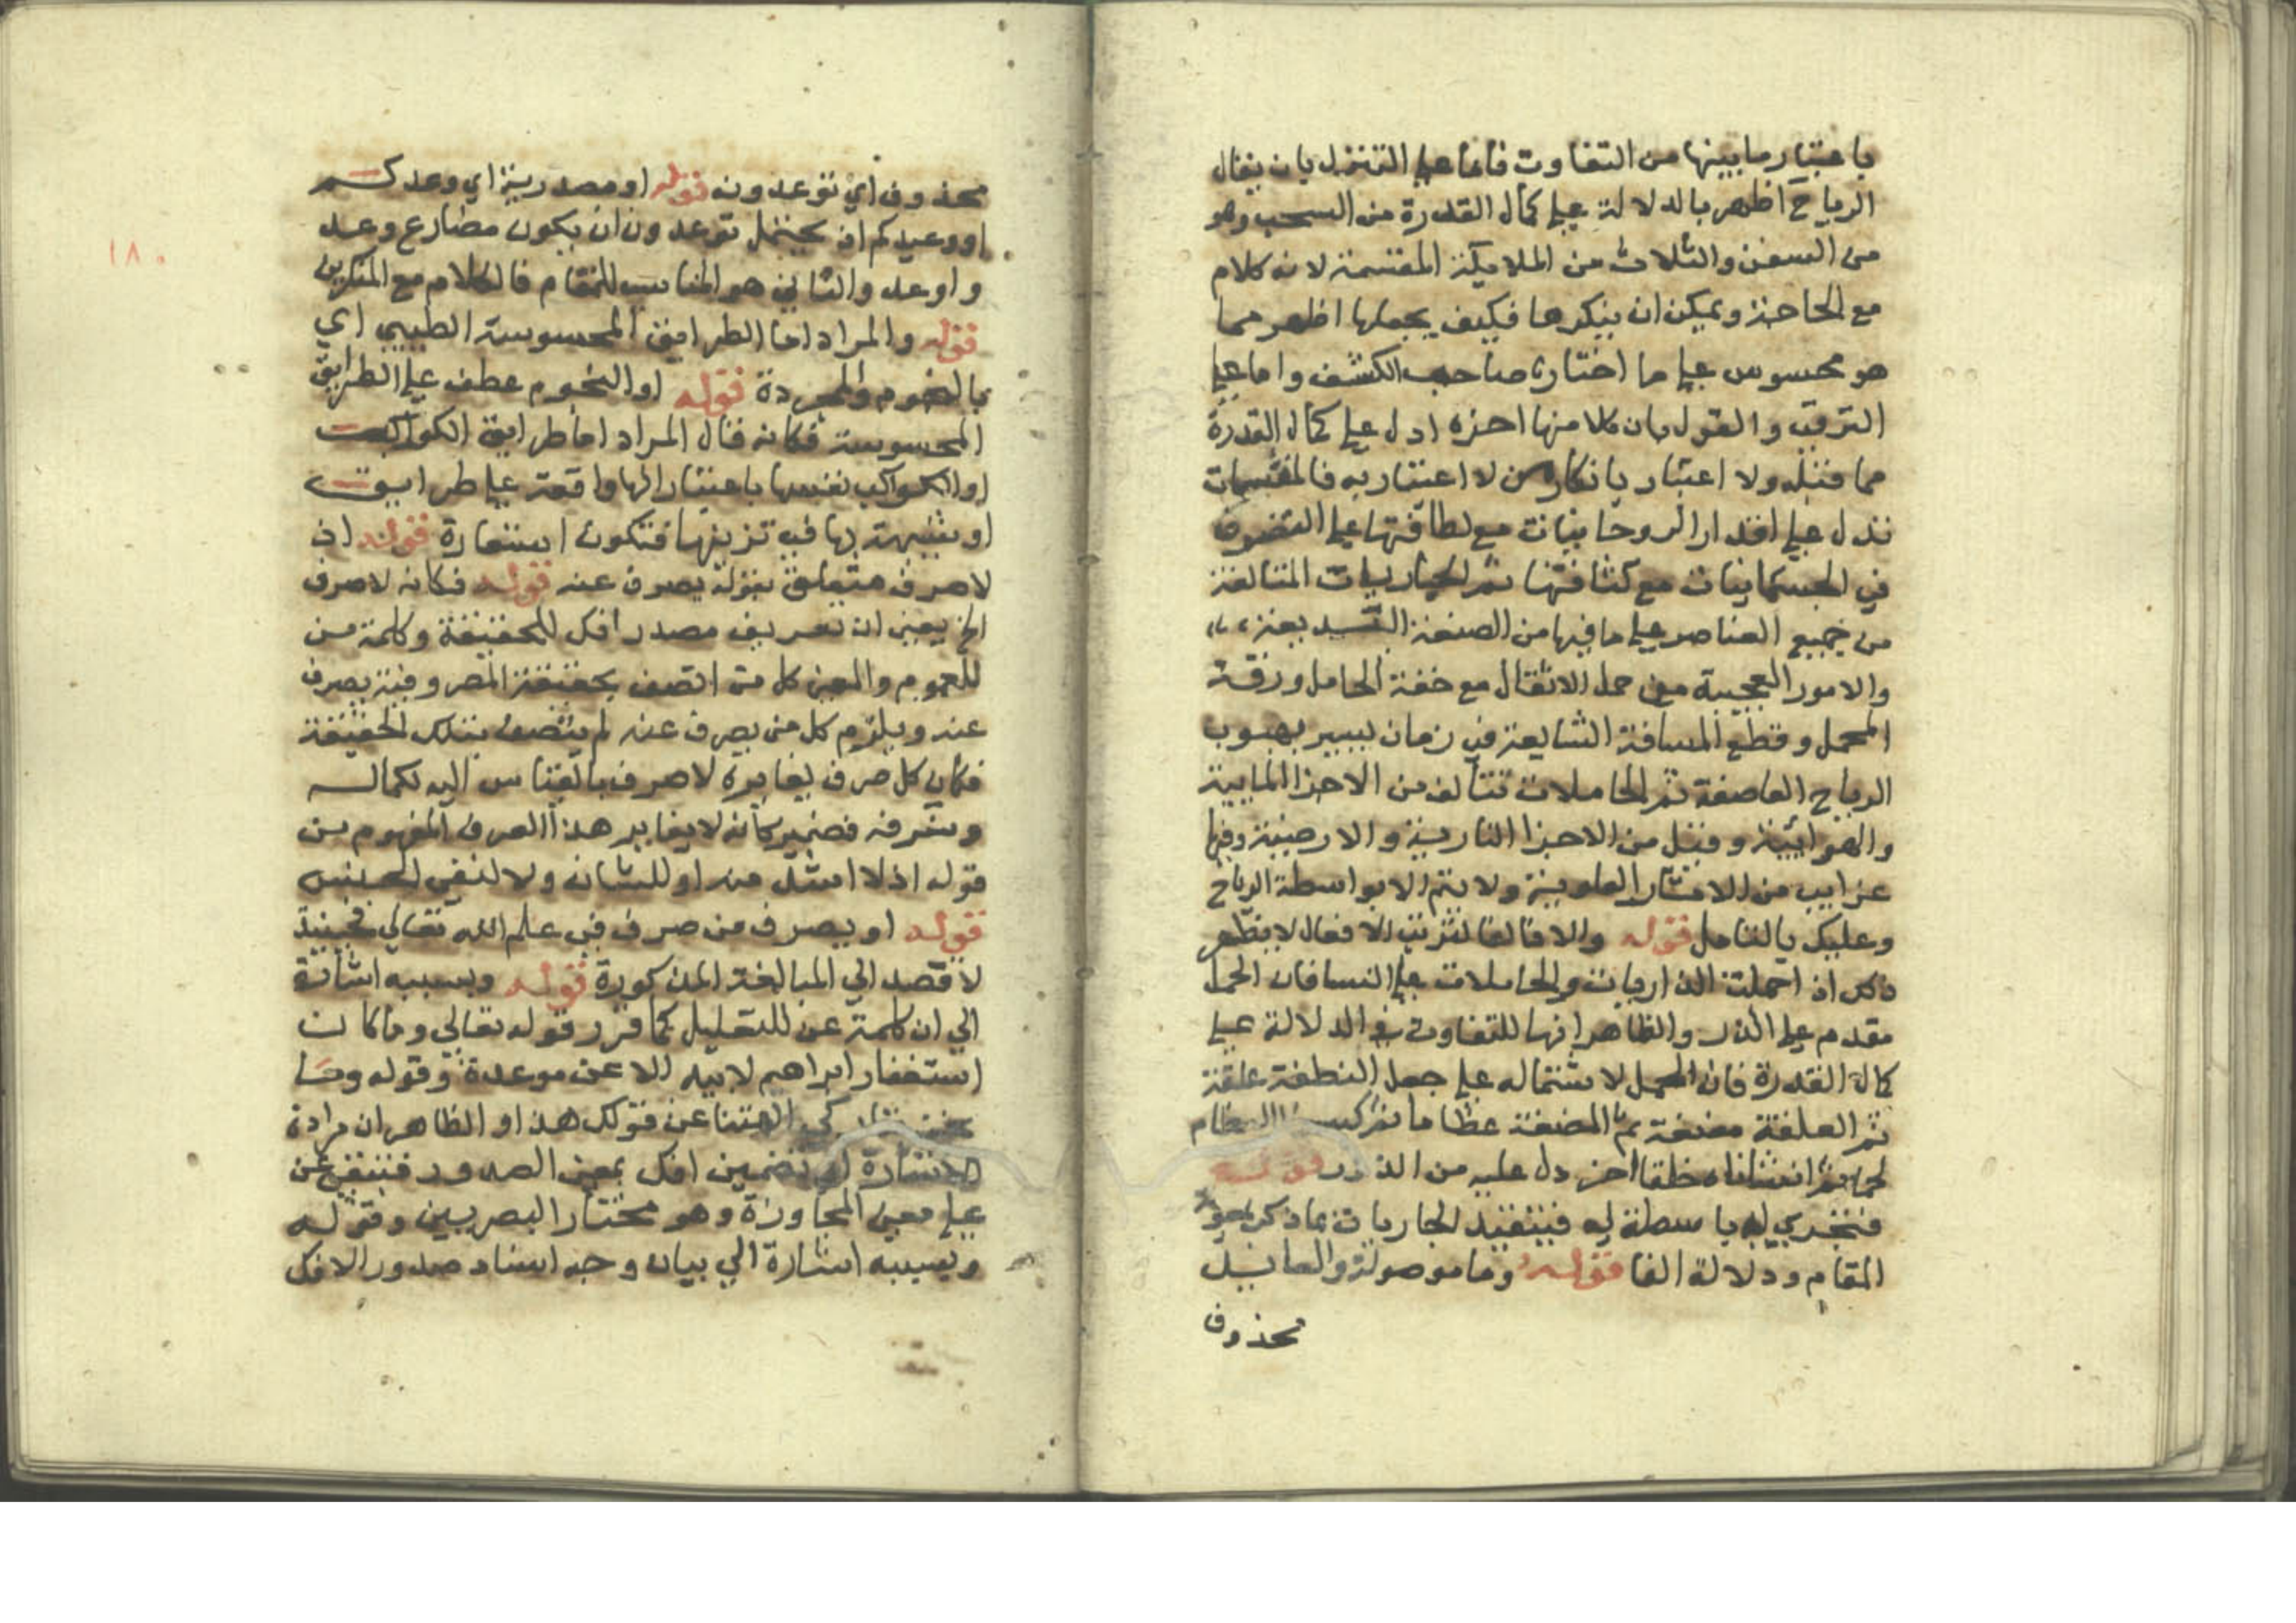 باعتبار ما بينها من التفاوت فاما على التنزل بان يقال
الرياح اظهر بالدلالة على كمال القدرة من السحب وهو
من السفن والثلاث من الملايكة المقسمة لانه كلام
مع الجاحد ويمكن ان ينكرها فكيف يجعلها اظهر مما
هو محسوس على ما اختاره صاحب الكشف واما على
الترقي والقول بان كلا منها اخره ادل على كمال القدرة
مما قبله ولا اعتبار بانكار من لا اعتبار به فالمقسمات
تدل على اقتدار الروحانيات مع لطافتها على التصرف
في الجسمانيات مع كثافتها ثم الجاريات المتالفة
من جميع العناصر على ما فيها من الصنعة البديعة
والامور العجيبة من حمل الاثقال مع خفة الحامل ورقة
المحمل وقطع المسافة الشايعة في زمان يسير بهبوب
الرياح العاصفة ثم الحاملات تتالف من الاجزا المايية
والهوائية وقيل من الاجزا النارية والارضية وفيها
غرايب من الاثار العلوية ولا يتم الا بواسطة الرياح
وعليك بالتامل قوله والا فالفا لترتيب الافعال لا يظهر
ذلك اذ احملت الذاريات والحاملات على النسافان الحمل
مقدم على الذر والظاهر انها للتفاوت في الدلالة على
كمال القدرة فان الحمل لاشتماله على جعل النطفة علقة
ثم العلقة مضغة ثم المضغة عظاما ثم العظام
لحما ثم انشاناه خلقا اخر دل عليه من الذرر قوله
فتجري به باسطة له فيتقيد الجاريات بما ذكر
المقام ودلالة الفا قوله وما موصولة والعايد
محذوف
١٨٠
محذوف اي توعدون قوله او مصدرية اي وعدكم
او وعيدكم اذ يحتمل توعدون ان يكون مضارع وعد
واوعد والثاني هو المناسب للمقام فالكلام مع المنكرين
قوله والمراد اما الطرايق المحسوسة الطيبي اي
بالنجوم والمجردة قوله او النجوم عطف على الطرايق
المحسوسة فكانه قال المراد اما طرايق الكواكب
او الكواكب نفسها باعتبار انها واقعة على طرايق
او شبيهة بها في تزيينها فتكون استعارة قوله اذ
لا صرف متعلق بقوله يصرف عنه قوله فكانه لا صرف
الخ يعني ان تعريف مصدر افك للحقيقة وكلمة من
للعموم والمعنى كل من اتصف بحقيقة المصروفية يصرف
عنه ويلزم كل من يصرف عنه لم يتصف بتلك الحقيقة
فكان كل صرف يغايره لا صرف بالقياس اليه لكماله
وشرفه فضمير كانه لا يغاير هذا الصرف المفهوم من
قوله اذ لا اشد منه او للشان ولا لنفي الجنس
قوله او يصرف من صرف في علم الله تعالى فحينيذ
لا قصد الي المبالغة المذكورة قوله وبسببه اشارة
الي ان كلمة عن للتعليل كما قرر قوله تعالى وما كان
استغفار ابراهيم لابيه الا عن موعدة وقوله وما
نحن بتاركي الهتنا عن قولك هذا او الظاهر ان مراده
الاشارة الى تضمين افك بمعنى الصدور فيتفرع عن
على معنى المجاوزة وهو مختار البصريين وقوله
وبسببه اشارة الي بيان وجه اسناد صدور الافك